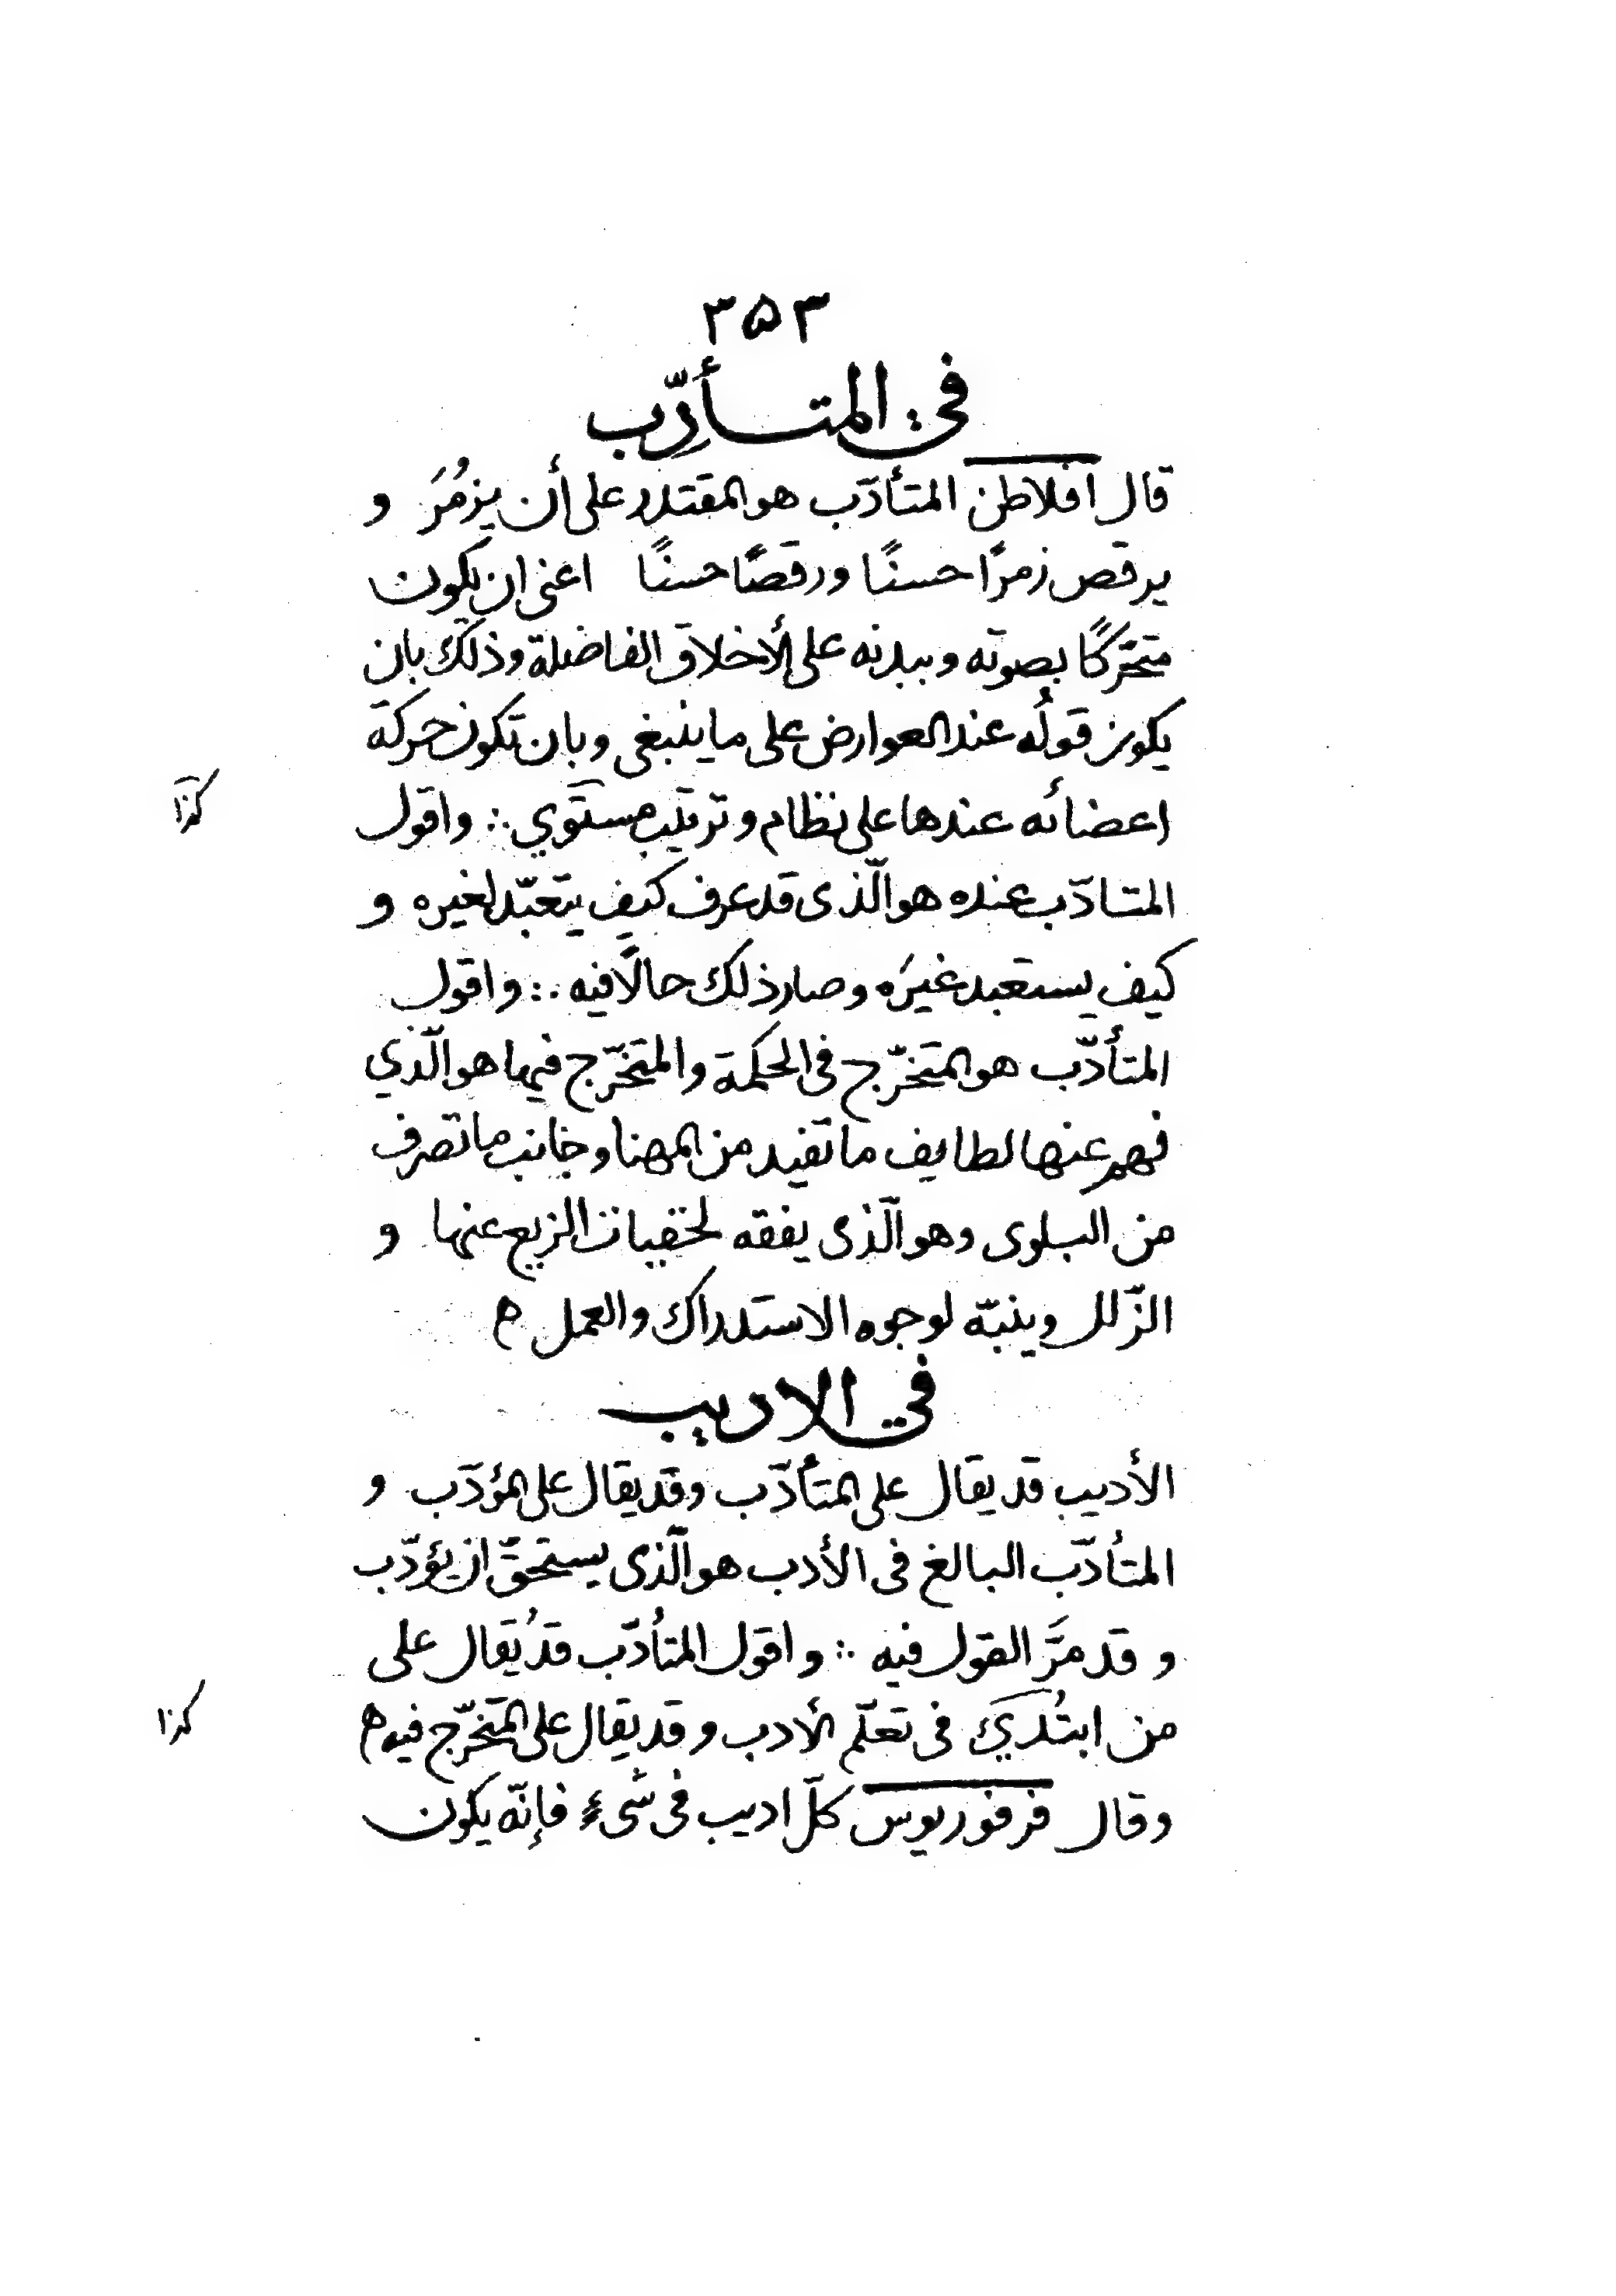 ٣٥٣
في المتأدّب
قال افلاطن المتأدّب هو المقتدر على أن يزمُرَ و
يرقص زمرًا حسنًا ورقصًا حسنًا اعنى ان يكون
متحرّكًا بصوته وببدنه على الأخلاق الفاضلة وذلك بان
يكون قولُه عند العوارض على ما ينبغى وبان تكون حركة
اعضائه عندها على نظام وترتيب مستوي ∴ واقول
كذا
المتادّب عنده هو الّذى قد عرف كيف يتعبّد لغيره و
كيف يستعبد غيَره وصار ذلك حالًا فيه ∴ واقول
المتأدّب هو المتخرّج فى الحكمة والمتخرّج فيها هو الّذي
فهم عنها لطايف ما تفيد من المهنا وخانب ما تصرف
من البلوى وهو الّذى يفقه لخفيات الزيع عنها و
الزّلل وينبّه لوجوه الاستدراك والعمل ه
في الاديب
الأديب قد يقال على المتأدّب وقد يقال على المؤدّب و
المتأدّب البالغ فى الأدب هو الّذى يستحقّ ان يؤدّب
و قد مَرَّ القول فيه ∴ واقول المتأدّب قد يُقال على
من ابتُدي فى تعلّم الأدب وقد يقال على المتخرّج فيه ه
كذا
وقال فرفوريوس كلّ اديب فى شىءٍ فإنّه يكون